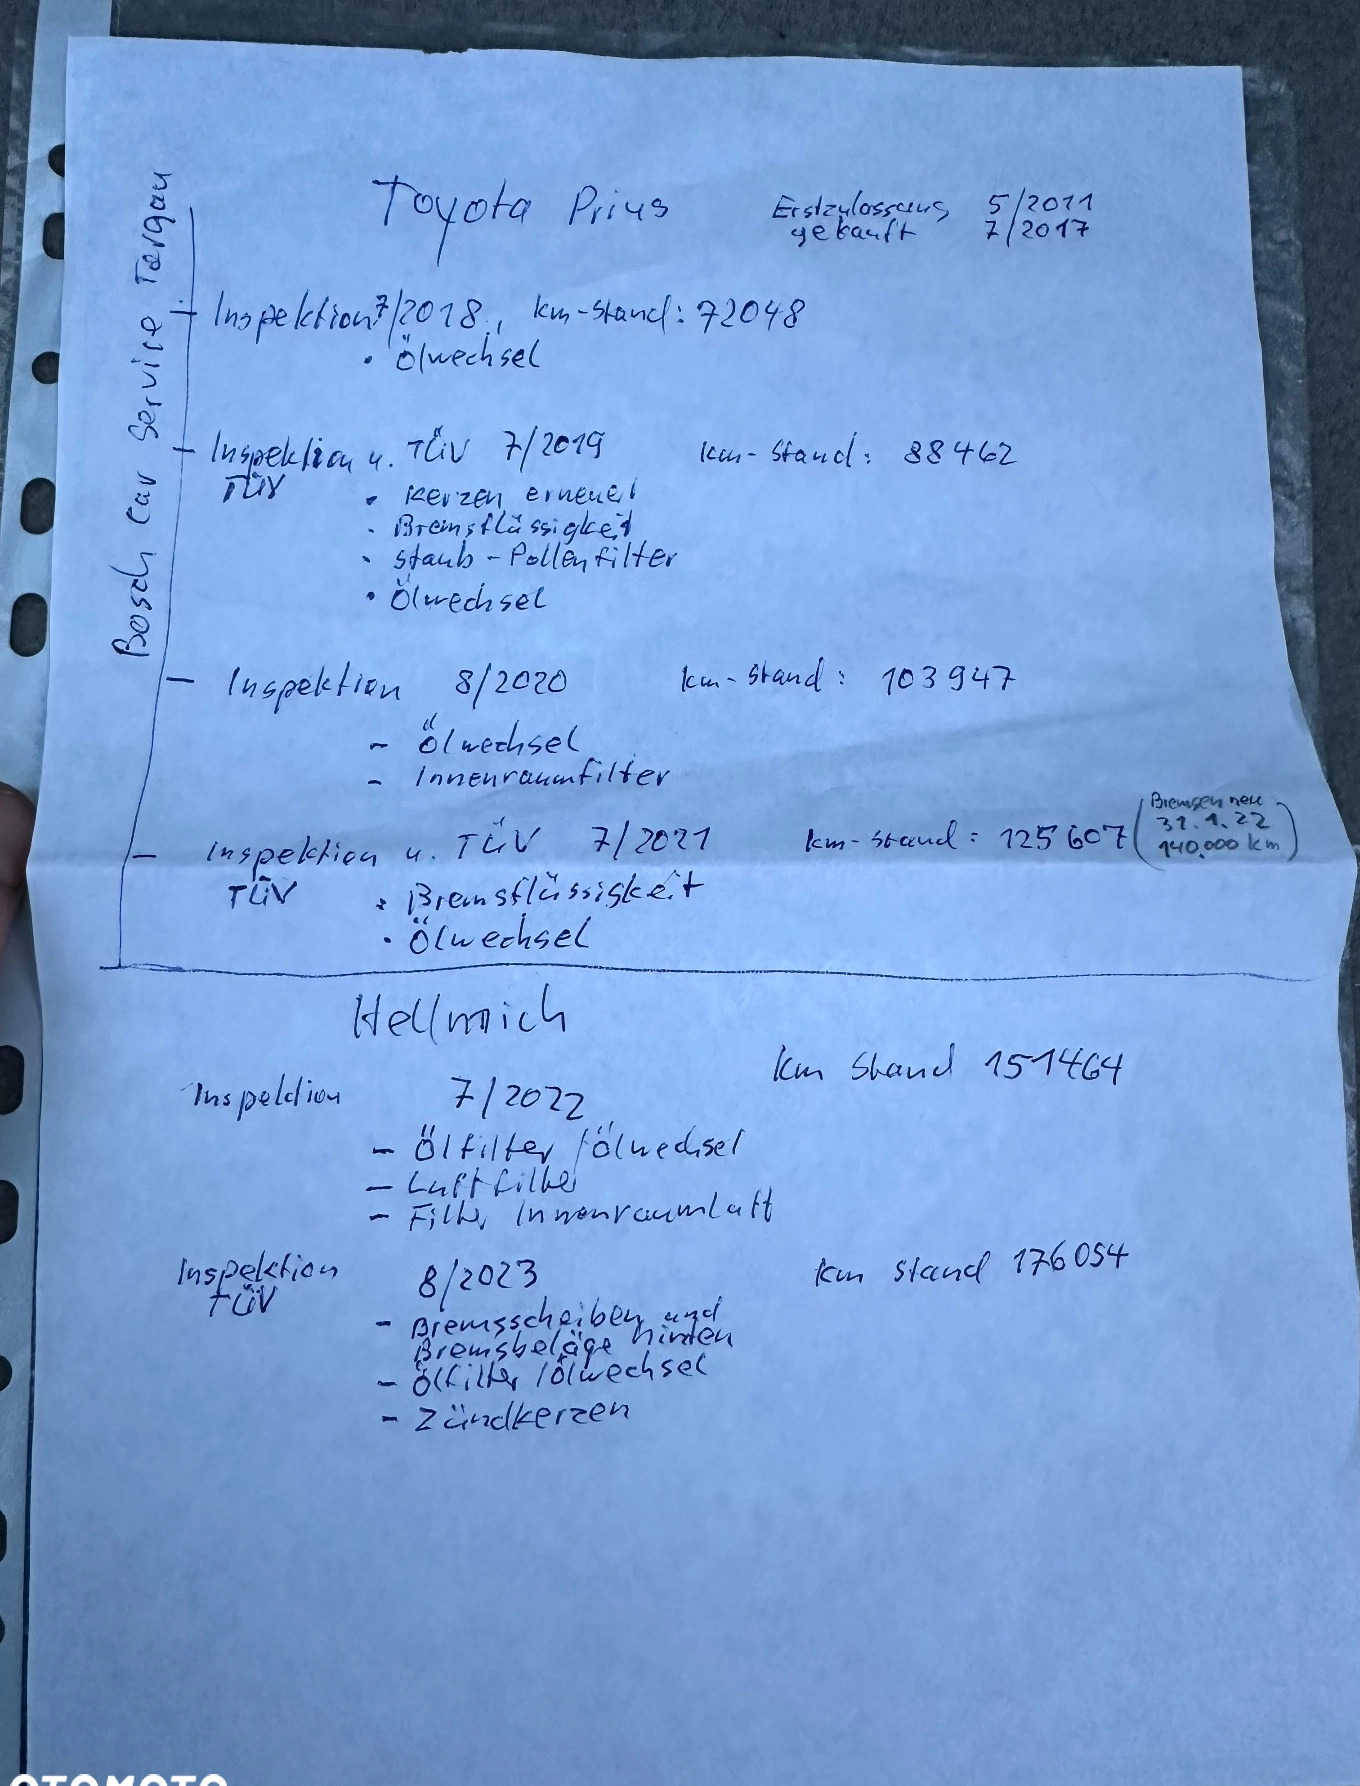 Toyota Prius
Erstzulassung 5/2011
gekauft 7/2017
Bosch Car Service Torgau
Inspektion 7/2018, km-Stand: 72048
• Ölwechsel
Inspektion u. TÜV 7/2019 km-Stand: 88462
TÜV
• Kerzen erneuert
• Bremsflüssigkeit
• Staub-Pollenfilter
• Ölwechsel
Inspektion 8/2020 km-Stand: 103947
- Ölwechsel
- Innenraumfilter
Inspektion u. TÜV 7/2021 km-Stand: 125607 (Bremsen neu
31.1.22
140.000 km)
TÜV
• Bremsflüssigkeit
• Ölwechsel
Hellmich
Inspektion 7/2022 km Stand 151464
- Ölfilter/Ölwechsel
- Luftfilter
- Filter Innenraumluft
Inspektion 8/2023 km Stand 176054
TÜV
- Bremsscheiben und
Bremsbeläge hinten
- Ölfilter/Ölwechsel
- Zündkerzen
OTOMOTO